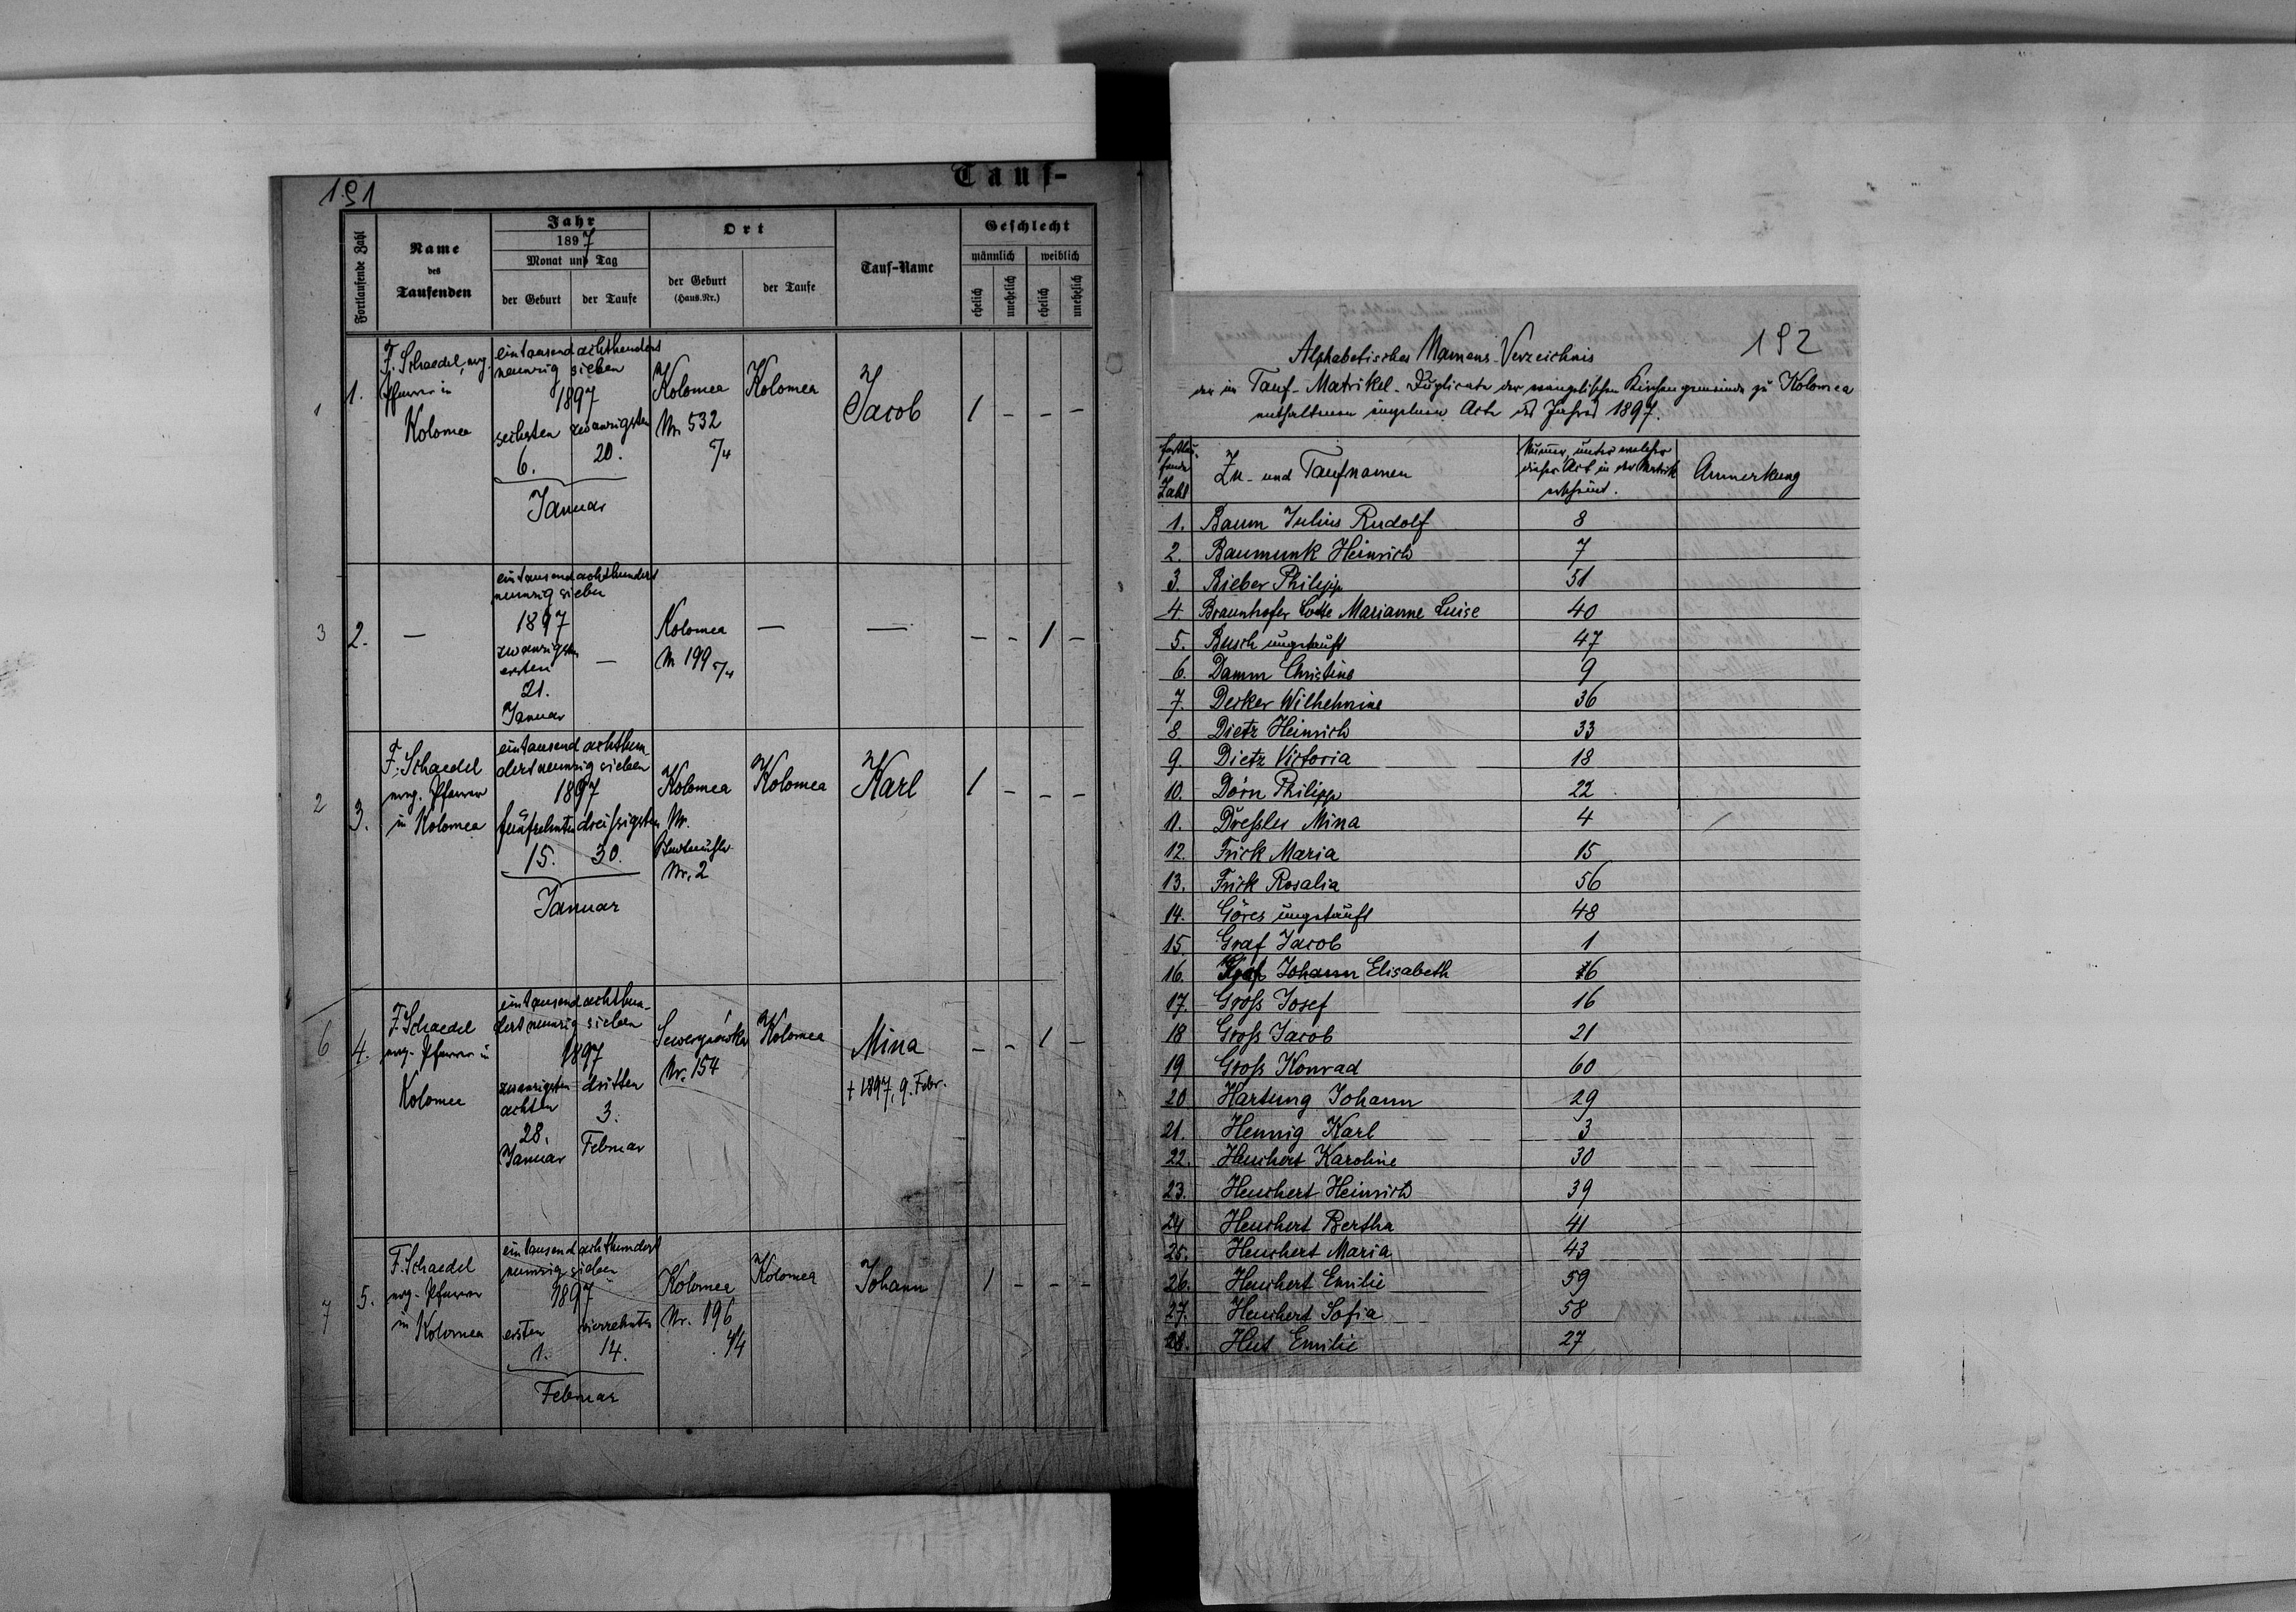 191
Tauf-
Fortlaufende Zahl
Name
des
Taufenden
Jahr
1897
Monat und Tag
der Geburt
der Taufe
Ort
der Geburt
(Haus-Nr.)
der Taufe
Tauf-Name
Geschlecht
männlich
weiblich
ehelich
unehelich
ehelich
unehelich
1
1.
F. Schaedel, evg.
Pfarrer in
Kolomea
eintausend achthundert
neunzig sieben
1897
sechsten zwanzigsten
6. 20.
Januar
Kolomea
Nr. 532
Kolomea
Jacob
1 - - -
3
2.
—
eintausend achthundert
neunzig sieben
1897
zwanzigsten
ersten
21.
Januar
—
Kolomea
Nr 199
—
—
- - 1 -
2
3.
F. Schaedel
evg. Pfarrer
in Kolomea
eintausend achthun-
dert neunzig sieben
1897
fünfzehnten dreissigsten
15. 30.
Januar
Kolomea
Nr.
Nr. 2
Kolomea
Karl
1 - - -
6
4.
F. Schaedel
evg. Pfarrer in
Kolomea
eintausend achthun-
dert neunzig sieben
1897
zwanzigsten dritten
achten 3.
28. Februar
Januar
Sewerynówka
Nr. 154
Kolomea
Mina
† 1897, 9. Febr.
- - 1 -
7
5.
F. Schaedel
evg. Pfarrer
in Kolomea
eintausend achthundert
neunzig sieben
1897
ersten vierzehnten
1. 14.
Februar
Kolomea
Nr. 196
Kolomea
Johann
1 - - -
192
Alphabetisches Namens-Verzeichnis
der im Tauf-Matrikel-Duplicate der evangelischen Kirchengemeinde zu Kolomea
enthaltenen Acte des Jahres 1897.
Fortlau-
fende
Zahl
Zu- und Taufnamen
Nummer, unter welcher
dieser Act in der Matrik
erscheint.
Anmerkung
1. Baum Julius Rudolf 8
2. Baumunk Heinrich 7
3. Bieber Philipp 51
4. Braunhofer Lotte Marianne Luise 40
5. Busch ungetauft 47
6. Damm Christine 9
7. Decker Wilhelmine 36
8. Dietz Heinrich 33
9. Dietz Victoria 18
10. Dörn Philipp 22
11. Dreßler Mina 4
12. Frick Maria 15
13. Frick Rosalia 56
14. Göres ungetauft 48
15. Graf Jacob 1
16. Graf Johann Elisabeth 6
17. Groß Josef 16
18 Groß Jacob 21
19 Groß Konrad 60
20 Hartung Johann 29
21. Hennig Karl 3
22. Heuchert Karoline 30
23. Heuchert Heinrich 39
24 Heuchert Bertha 41
25. Heuchert Maria 43
26. Heuchert Emilie 59
27. Heuchert Sofia 58
28. Hut Emilie 27